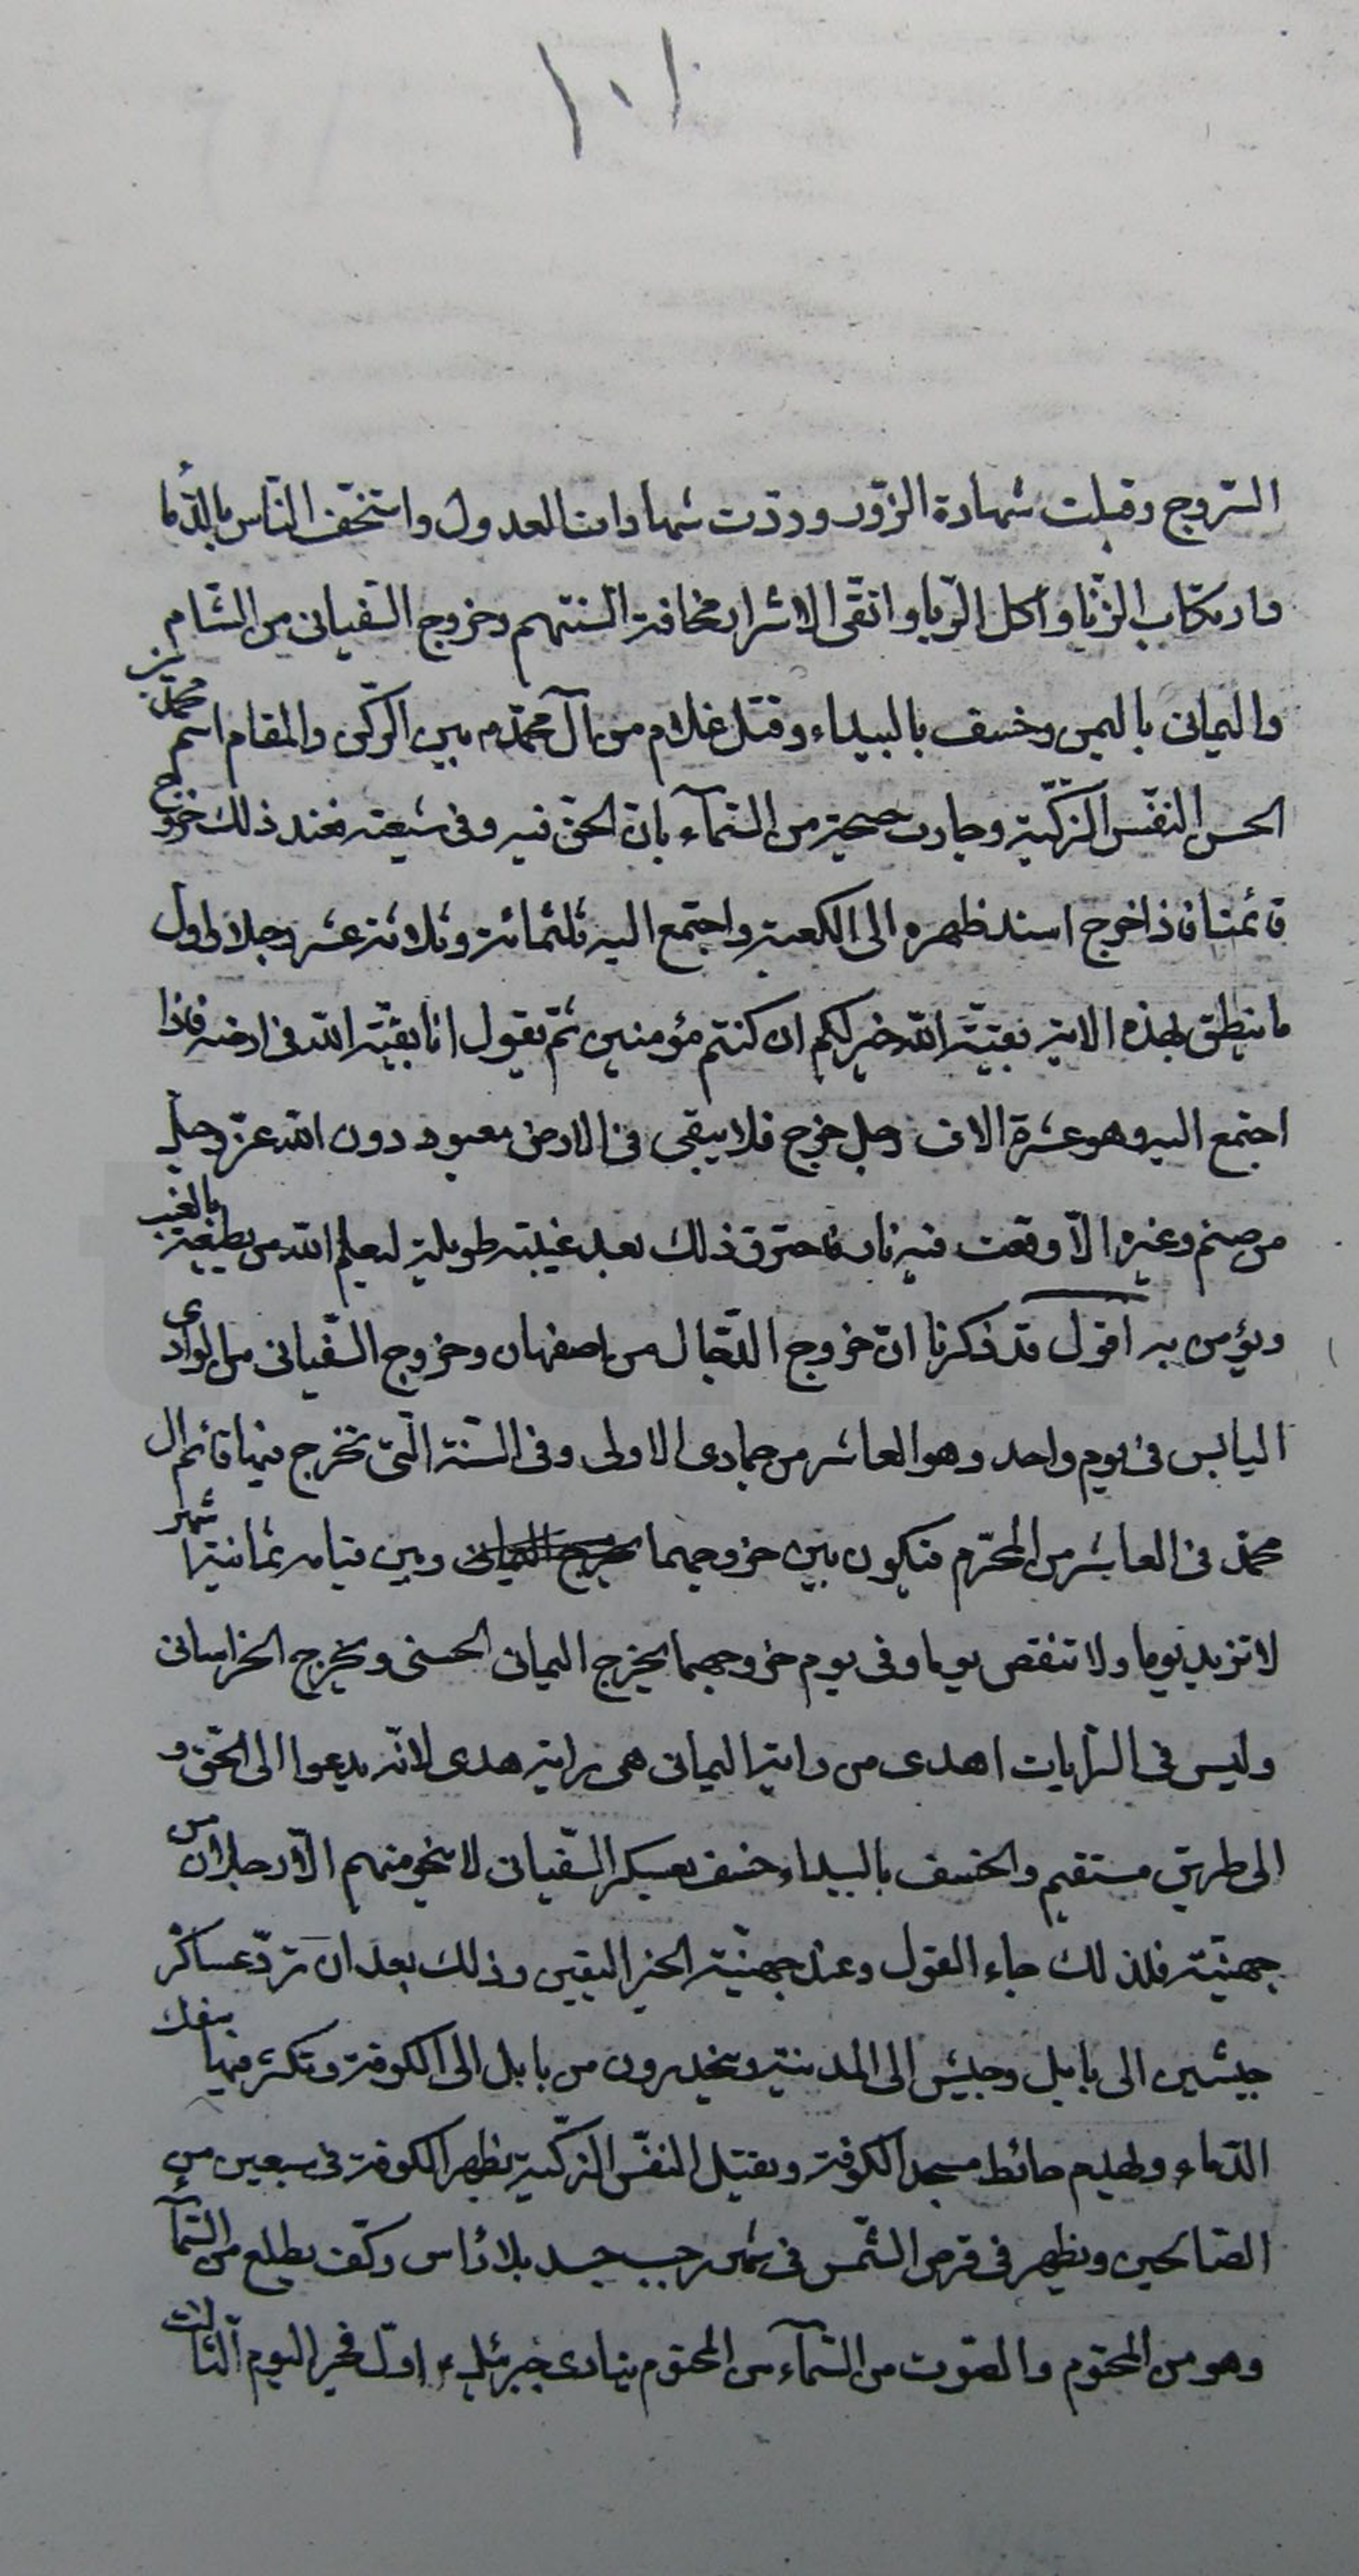 ١٠١
السّروج وقبلت شهادة الزّور وردّت شهادات العدول واستخفّ الناس بالدّماء
وارتكاب الزّنا واكل الرّبا واتقى الاشرار مخافة السنتهم وخروج السّفيانى من الشّام
واليمانى باليمن وخسف بالبيداء وقتل غلام من آل محمّدم بين الرّكن والمقام اسمه محمّد بن
الحسن النفس الزّكيّة وجاءت صيحة من السّمآء بانّ الحقّ فيه وفى شيعته فعند ذلك خروج
قائمنا فاذا خرج اسند ظهره الى الكعبة واجتمع اليه ثلثمائة وثلاثة عشر رجلا واول
ما ينطق بهذه الاية بقيّة الله خير لكم ان كنتم مؤمنين ثمّ يقول انا بقيّة الله فى ارضه فاذا
اجتمع اليه وهو عشرة الاف رجل خرج فلا يبقى فى الارض معبود دون الله عزّ وجلّ
من صنم وغيره الّا وقعت فيه نار فاحترق ذلك بعد غيبته طويلة ليعلم الله من يطيعه بالغيب
ويؤمن به اقول قد ذكرنا انّ خروج الدّجال من اصفهان وخروج السّفيانى من الوادى
اليابس فى يوم واحد وهو العاشر من جمادى الاولى وفى السّنة الّتى تخرج فيها قائم ال
محمّد فى العاشر من المحرّم فيكون بين خروجهما يخرج اليمانى وبين قيامه ثمانية اشهر
لا تزيد يوما ولا تنقص يوما وفى يوم خروجهما يخرج اليمانى الحسنى ويخرج الخراسانى
وليس فى الرّايات اهدى من راية اليمانى هى راية هدى لانّه يدعوا الى الحقّ و
الى طريق مستقيم والخسف بالبيداء خسف بعسكر السّفيانى لا ينجو منهم الّا رجلان من
جهنيّة فلذلك جاء القول وعند جهنيّة الخبر اليقين وذلك بعد ان تردّ عساكر
جيشين الى بابل وجيش الى المدينة وينحدرون من بابل الى الكوفة وتكثر فيها سفك
الدّماء ولهدم حائط مسجد الكوفة ويقتل النفس الزّكية بظهر الكوفة فى سبعين من
الصّالحين ويظهر فى قرص الشّمس فى شهر رجب جسد بلا رأس وكفّ يطلع من السّمآء
وهو من المحتوم والصّوت من السّمآء من المحتوم ينادى جبرئيل ع اوّل فجر اليوم الثالث